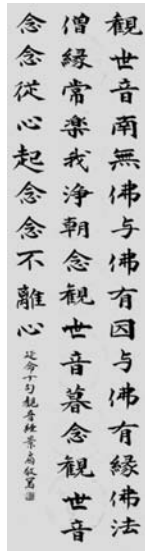 観世音南無佛与佛有因与佛有縁佛法
僧縁常楽我浄朝念観世音暮念観世音
念念従心起念念不離心
延命十句観音経